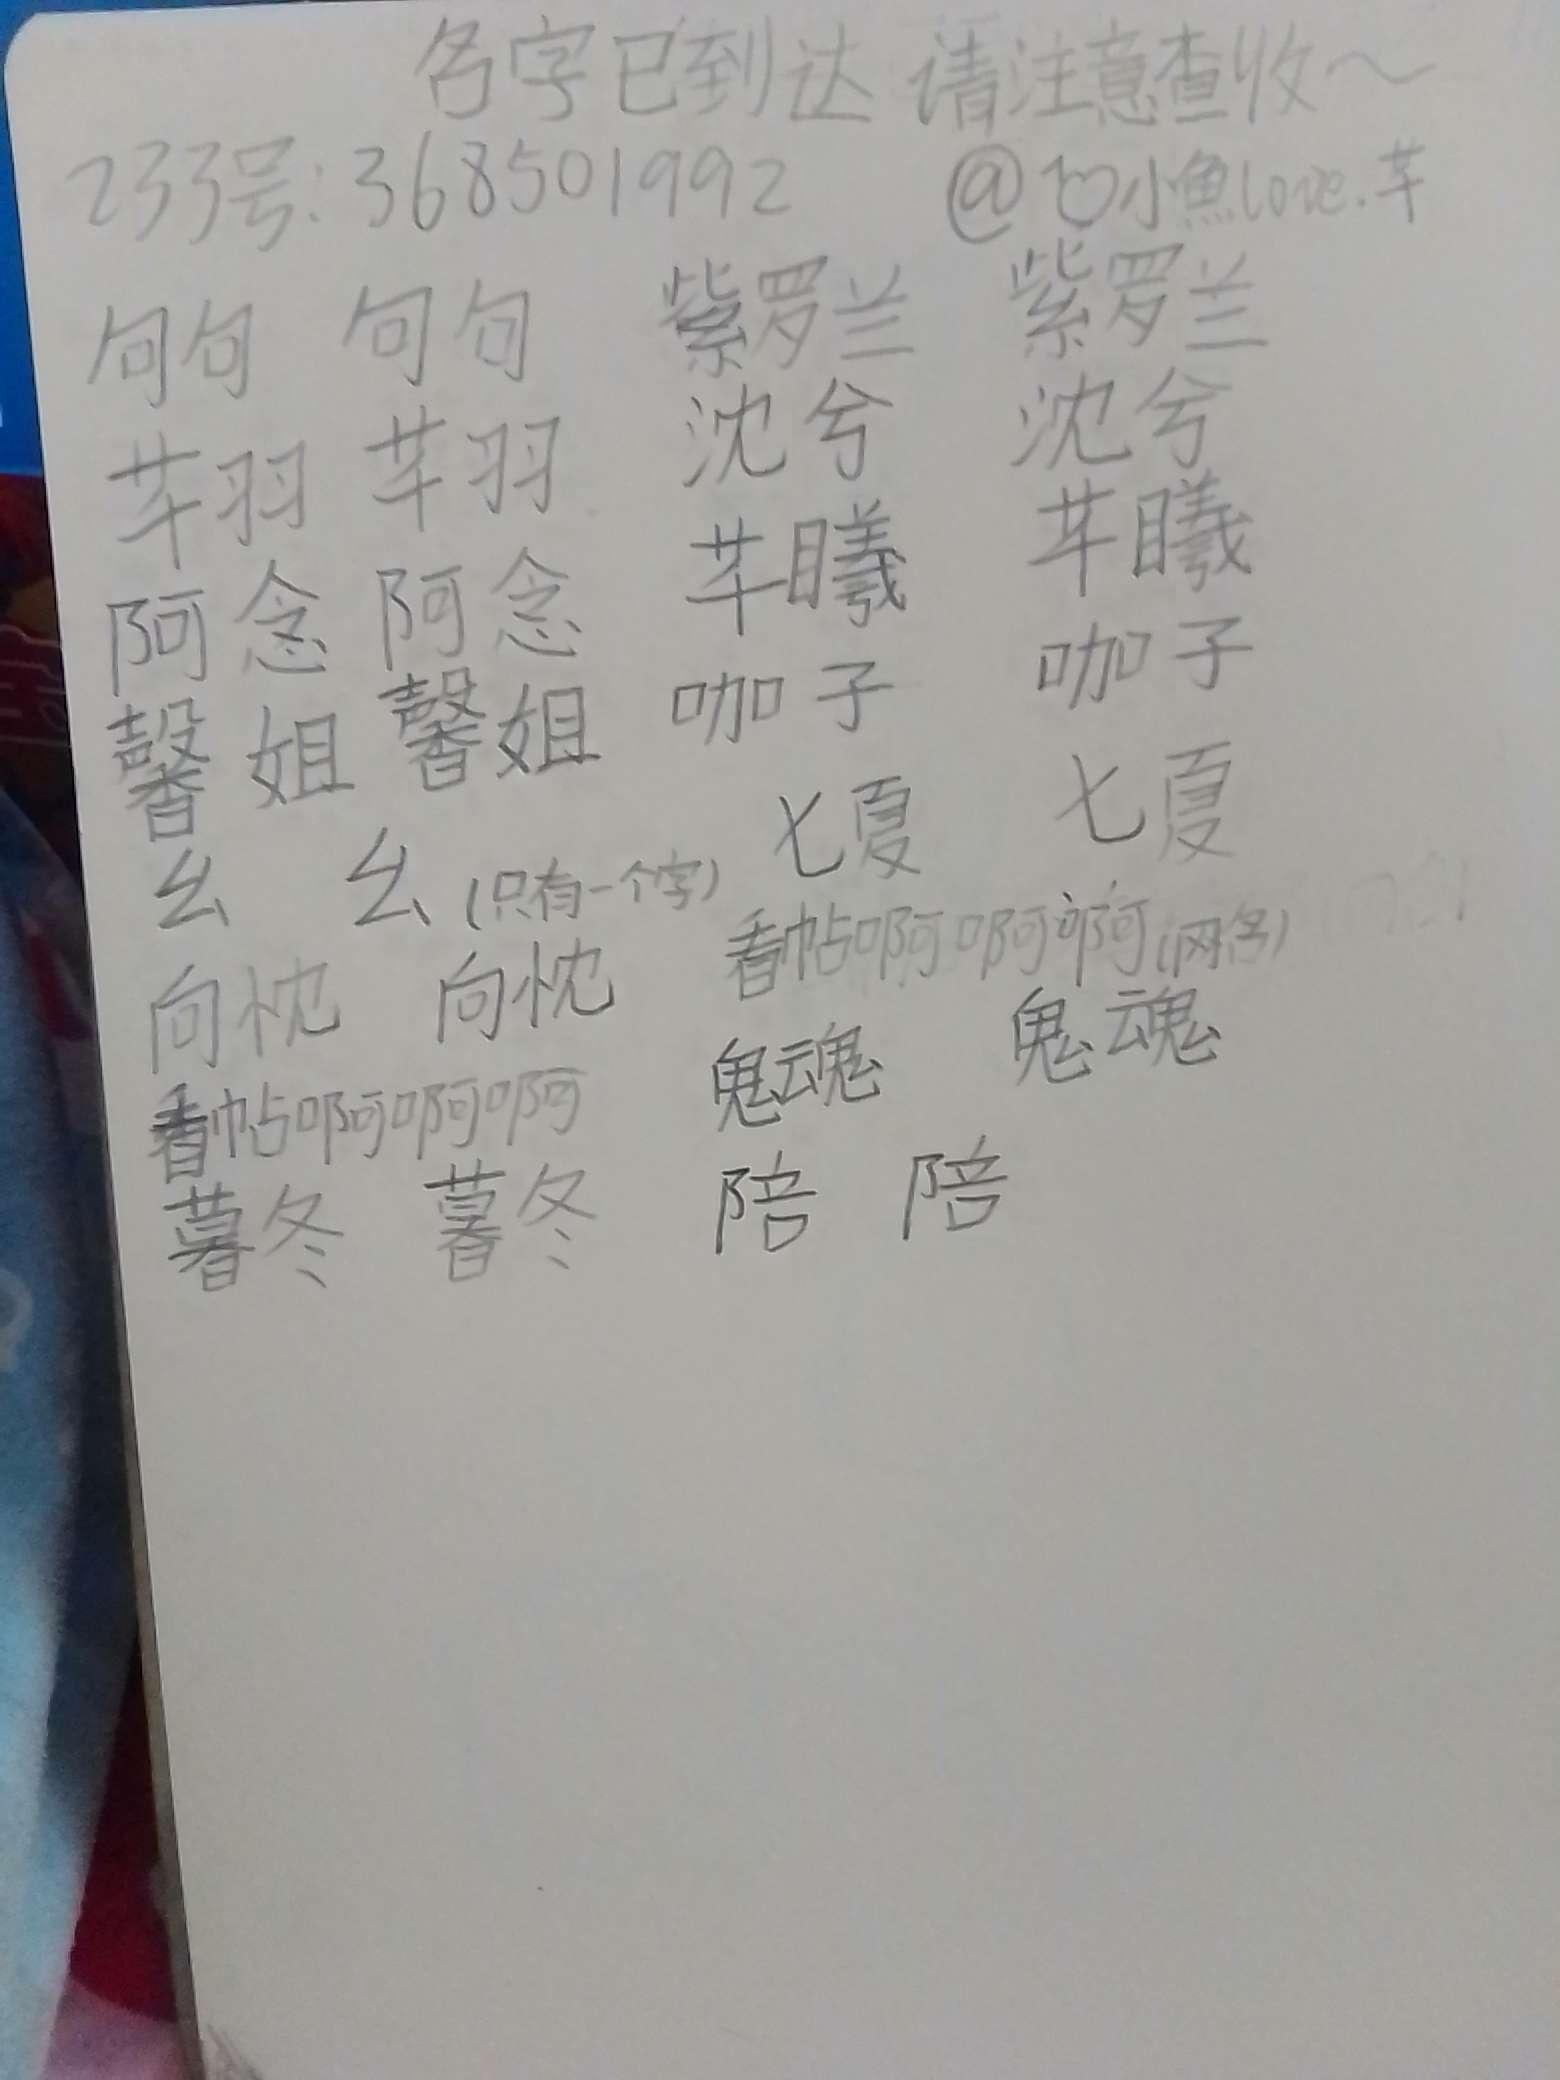 名字已到达 请注意查收～
233号:368501992 @小魚love.芊
句句 句句 紫罗兰 紫罗兰
芊羽 芊羽 沈兮 沈兮
阿念 阿念 芊曦 芊曦
馨姐 馨姐 咖子 咖子
幺 幺(只有一个字) 七夏 七夏
向忱 向忱 看帖啊啊啊(网名)
看帖啊啊啊 鬼魂 鬼魂
暮冬 暮冬 陪 陪